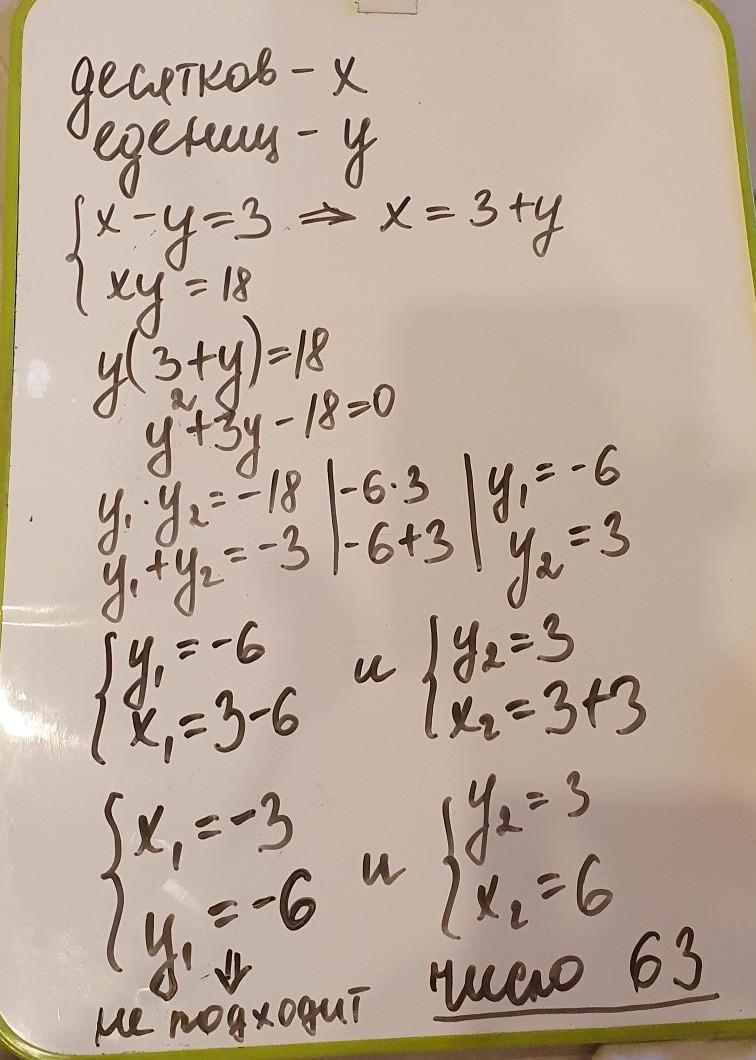 десятков - x
едениц - y
{ x - y = 3 ⇒ x = 3 + y
{ xy = 18
y(3+y)=18
y²+3y-18=0
y₁·y₂=-18 | -6·3 | y₁=-6
y₁+y₂=-3 | -6+3 | y₂=3
{ y₁=-6 и { y₂=3
{ x₁=3-6 { x₂=3+3
{ x₁=-3 и { y₂=3
{ y₁=-6 { x₂=6
⇓
не подходит число 63